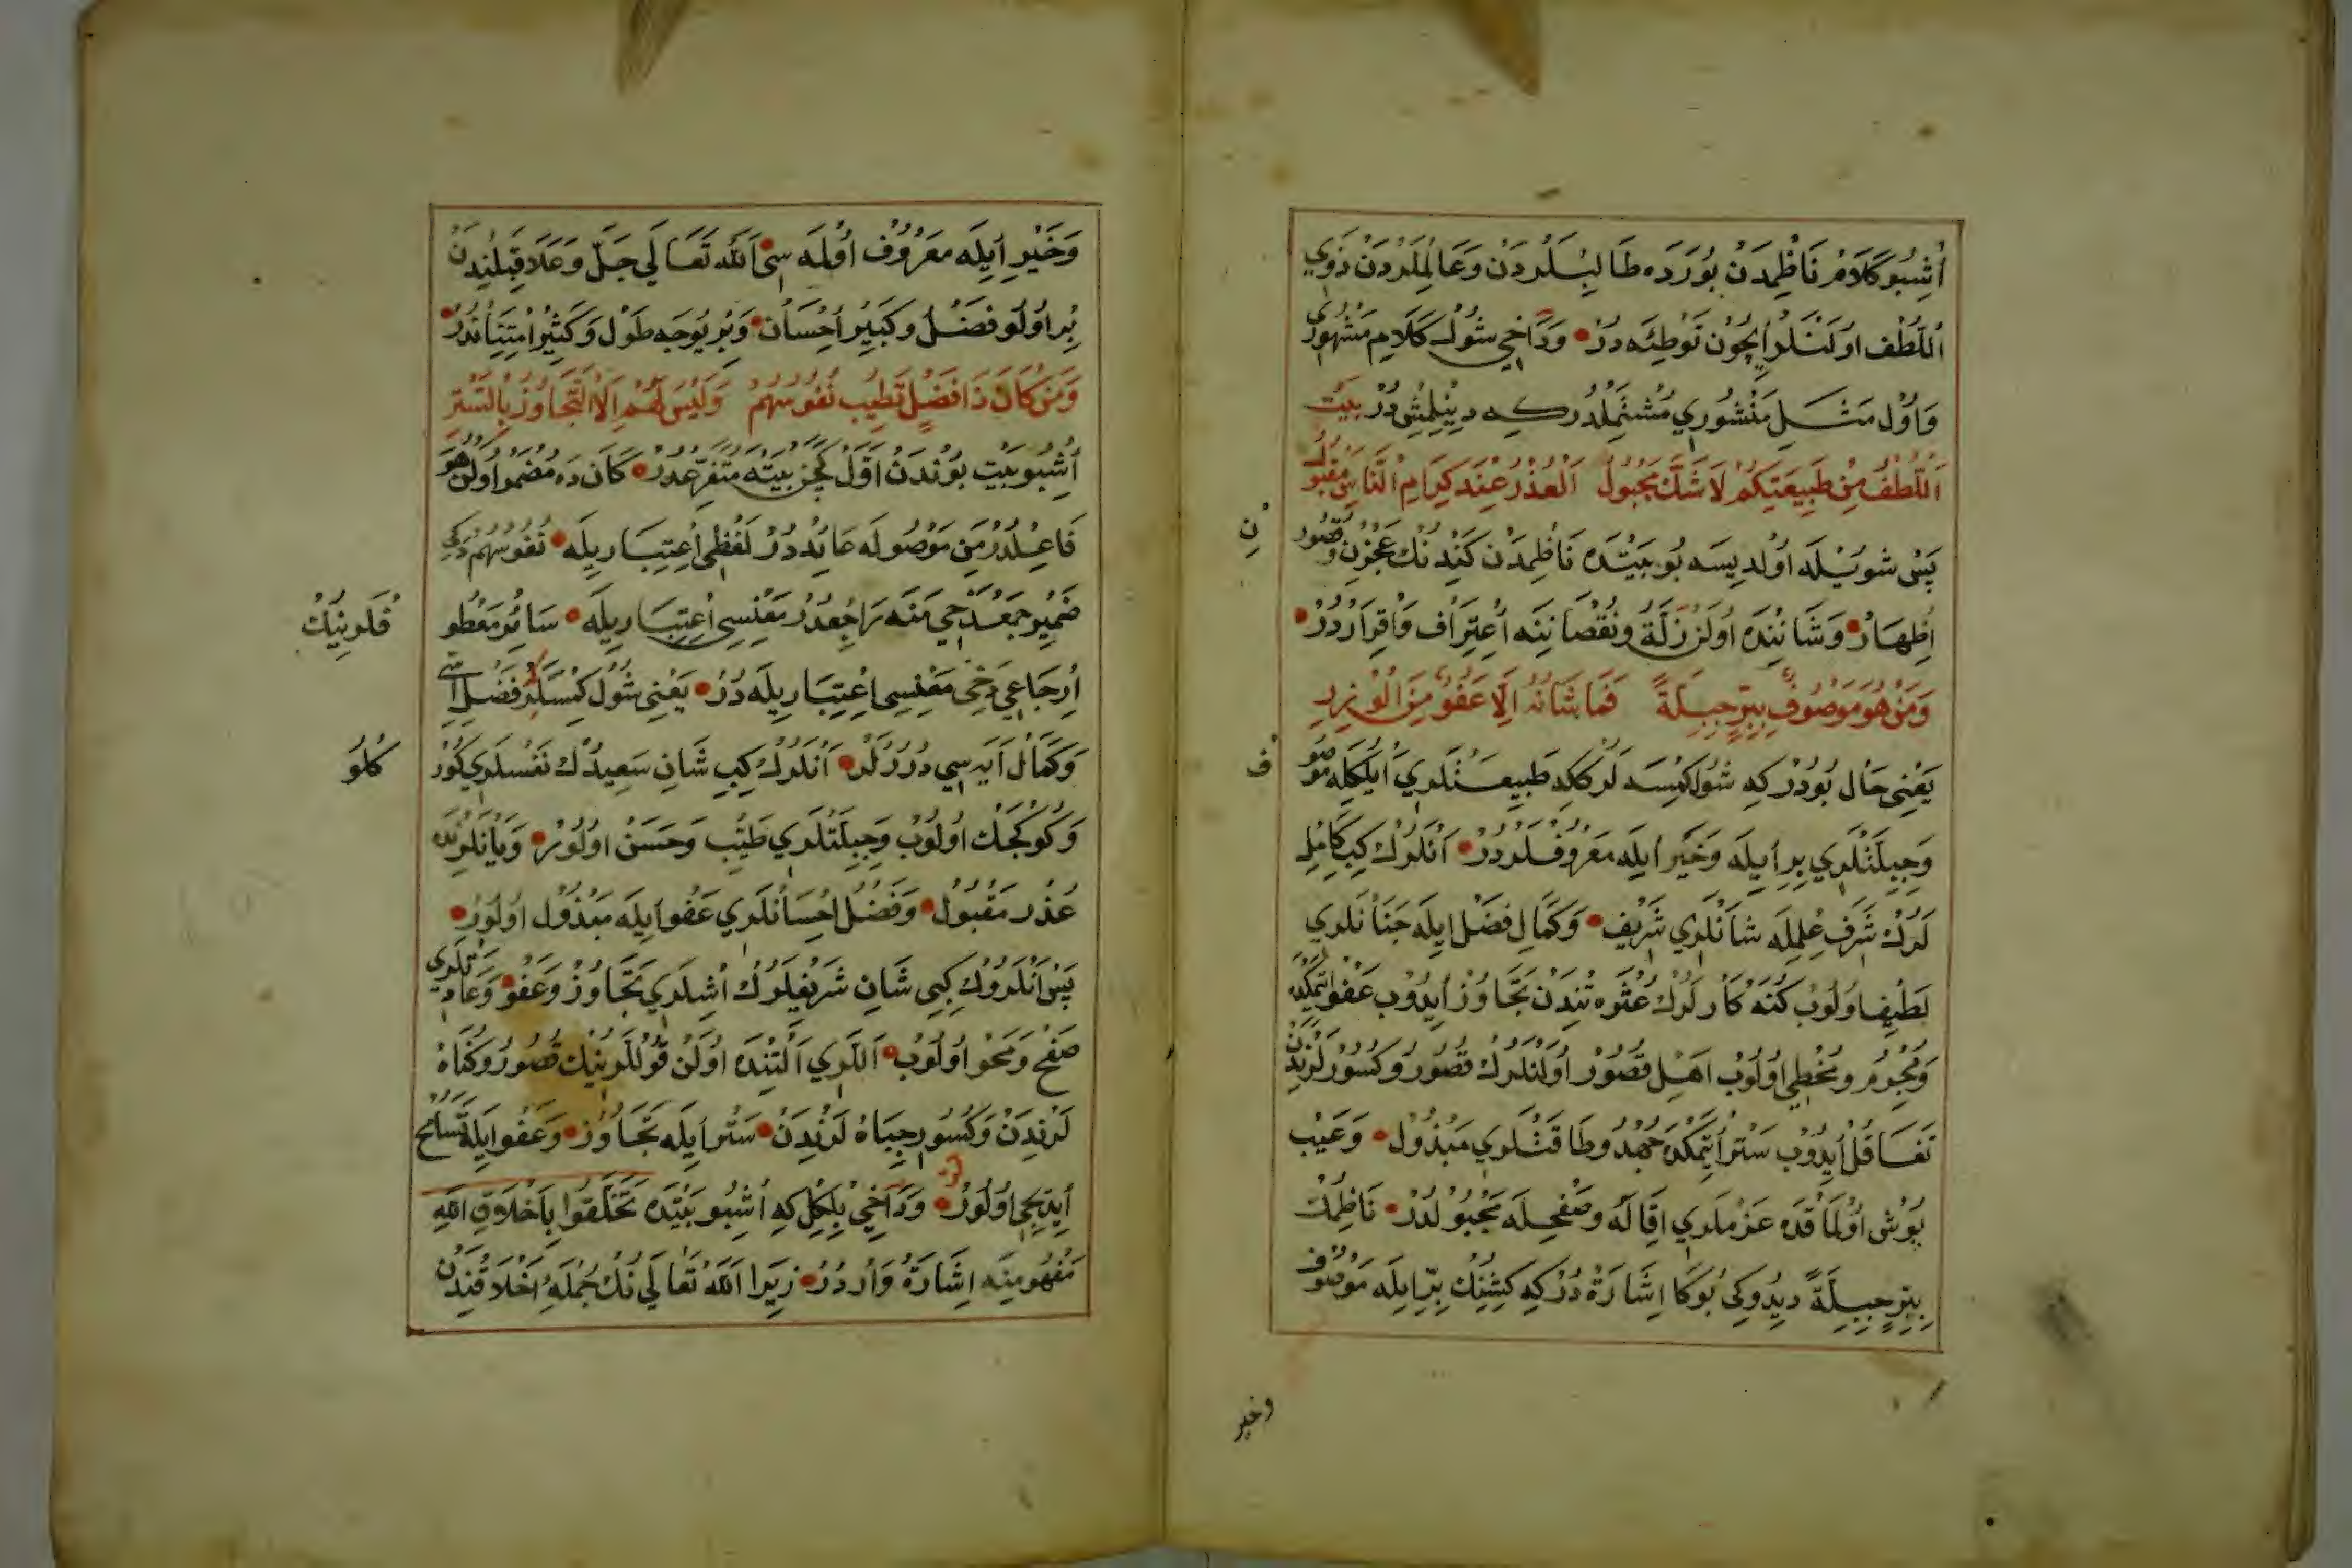 اُشبُو كَلَامْ نَاظِمدَنْ بُورَدَه طَالِبْلَرْدَنْ وَعَالِمْلَرْدَنْ ذَوِي
اَللُّطْف اوُلَنْلَر اِيچُون تَوْطِئَه دُرْ وَدَاخِي شُولْ كَلَامِ مَشْهُورِي
وَاوُل مَثَلِ مَنْشُورِي مُشْتَمِلْدُر كِه دِينِلْمِشْ دُرْ بَيْت
اَللُّطْفُ مِنْ طَبِيعَتِكُمْ لَا شَكَّ مَجْبُولُ اَلْعُذْرُ عِنْدَ كِرَامِ النَّاسِ مَقْبُولُ
پَسْ شُويْلَه اوُلْدِيسَه بُو بَيْتْدَه نَاظِمْدَنْ كَنْدُنُكْ عَجْزِنْ وَقُصُورِ
نِ
اِظْهَارْ وَشَانِنْدَه اوُلَنْ زَلَّةْ وَنُقْصَانِنَه اِعْتِرَاف وَاِقْرَارْدُرْ
وَمَنْ هُوَ مَوْصُوفٌ بِبِرِّ جِبِلَّةً فَمَا شَانُهُ اِلَّا عَفُوٌّ مِنَ الْوِزْرِ
يَعْنِي حَال بُودُرْ كِه شُول كِمْسَه لَر كِه طَبِيعَتْلَرِي اَيُلِكْلَه مَوْصُو
ف
وَجِبِلَّتْلَرِي بِرّ اِيلَه وَخَيْر اِيلَه مَعْرُوفْلَرْ دُرْ اَنْلَرُكْ كِبِي كَامِلْ
لَرُكْ شَرَفِ عِلْمِلَه شَانْلَرِي شَرِيف وَكَمَالِ فَضْل اِيلَه جَنَانْلَرِي
لَطِيف اوُلُوب كُنَه كَارلَرُكْ عُثْوَه تِنْدَنْ تَجَاوُزْ اِيدُوب عَفْو اِتْمَكْدَه
وَمُجْرِمْ وَمُخْطِي اوُلُوب اَهْلِ قُصُورْ اوُلَنْلَرُكْ قُصُورْ وَكُسُورْلَرِنْدَنْ
تَغَافُلْ اِيدُوب سَتْر اِتْمَكْدَه جُهْد وَطَاقَتْلَرِي مَبْذُول وَعَيْب
پُوش اوُلْمَاقْدَه عَزْمْلَرِي اِقَالَه وَصَفْحِلَه مَجْبُولْدُرْ نَاظِمُكْ
بِبِرِّ جِبِلَّةً دِيدُوكِي بُوكَا اِشَارَةْ دُرْ كِه كِشِنُكْ بِرّ اِيلَه مَوْصُوف
وخير
وَخَيْر اِيلَه مَعْرُوف اوُلْمَه سِي اَللّٰه تَعَالَي جَلَّ وَعَلَا قِبَلِنْدَنْ
بِرْ اوُلُو فَضْل وَكَبِير اِحْسَان وَبِرْ يُوجَه طَوْل وَكَثِير اِمْتِنَانْدُرْ
وَمَنْ كَانَ ذَا فَضْلٍ تَطِيبُ نُفُوسُهُمْ وَلَيْسَ لَهُمْ اِلَّا التَّجَاوُزُ بِالسَّتْرِ
اُشْبُو بَيْت بُونْدَنْ اَوَّل كَچَنْ بَيْتَه مُتَفَرِّعْدُرْ كَانَ دَه مُضْمَر اوُلَنْ هُوَ
فَاعِلْدُرْ مَنْ مَوْصُولَه عَائِدْدُرْ لَفْظِي اِعْتِبَارِيلَه نُفُوسُهُمْ دَكِي
ضَمِير جَمْعْ دَخِي مَنَه رَاجِعْدُرْ مَعْنِسِي اِعْتِبَارِيلَه سَائِر مَعْطُو
فْلَرِينِكْ
اِرْجَاعِي دَخِي مَعْنِسِي اِعْتِبَارِيلَه دُرْ يَعْنِي شُول كِمْسَلَر فَضْل اِسِّي
وَكَمَال اَيَه سِي دُرُرْلَر اَنْلَرُكْ كِبِي شَانِ سَعِيدُكْ نَفْسْلَرِي كُوزْ
كْلُو
وَكُوكْچَكْ اوُلُوب وَجِبِلَّتْلَرِي طَيِّب وَحَسَنْ اوُلُورْ وَيَانْلَرِنْدَه
عُذْر مَقْبُول وَفَضْل اِحْسَانْلَرِي عَفْو اِيلَه مَبْذُول اوُلُورْ
پَسْ اَنْلَرُوكْ كِبِي شَانِ شَرِيفْلَرُكْ اِشْلَرِي تَجَاوُزْ وَعَفْو وَعَادَتْلَرِي
صَفْح وَمَحْو اوُلُوب اَللَرِي اَلْتِنْدَه اوُلَنْ قُولْلَرِينِكْ قُصُور وَكُنَاهْ
لَرِنْدَنْ وَكُسُور جِبَاهْ لَرِنْدَنْ سَتْر اِيلَه تَجَاوُز وَعَفْو اِيلَه تَسَامُح
اِيدِيجِي اوُلُورْ وَدَاخِي بِلْكِلْ كِه اُشْبُو بَيْتْدَه تَخَلَّقُوا بِاَخْلَاقِ اللّٰهِ
مَفْهُومِنَه اِشَارَةْ وَارْدُرْ زِيرَا اَللّٰه تَعَالَي نُكْ جُمْلَهِ اَخْلَاقِنْدَنْ